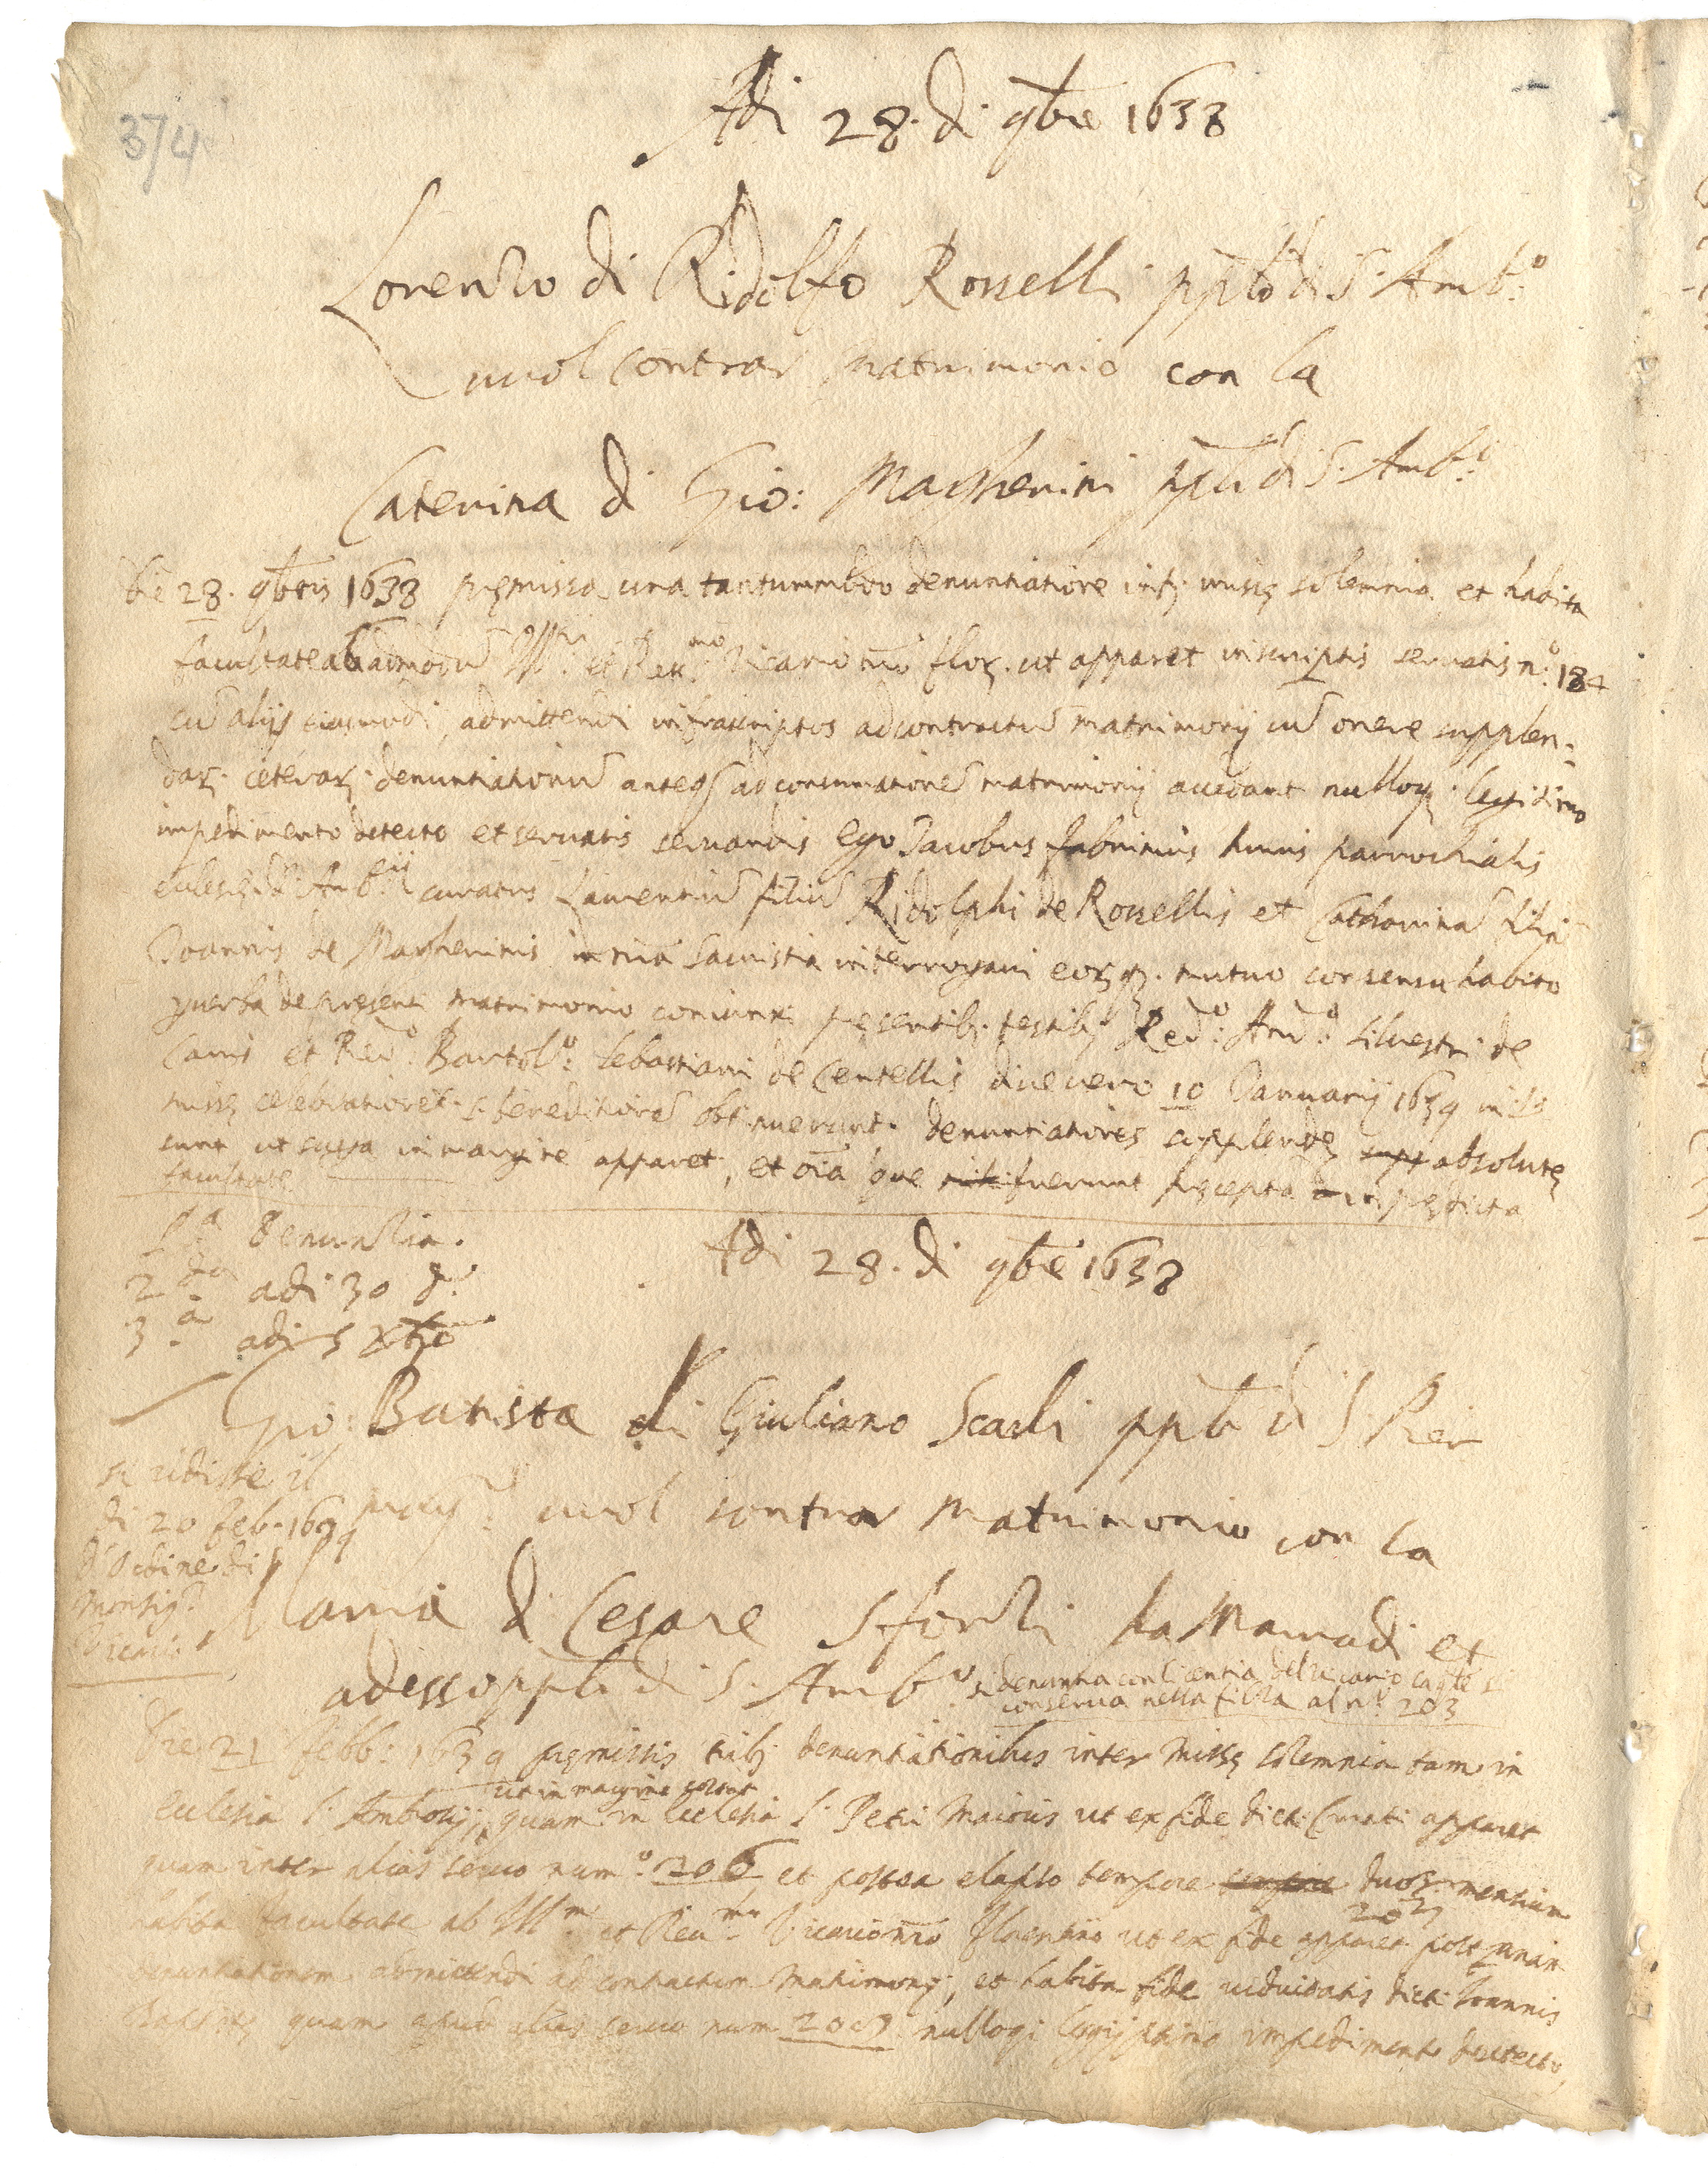 374
Adi 28. di 9bre 1638
Lorenzo di Ridolfo Rosselli ppło di S. Amb.o
vuol contrar matrimonio con la
Caterina di Gio: Magherini ppło di S. Amb.o
Die 28. 9bris 1638 premissa una tantummodo denuntiatione missę solemnia et habita
facultate ab admodu Ill. et Rev.mo Vicario flor. ut apparet in scriptis servatis n.o 184
cu alijs eiusmodi, admittendi infrascriptos ad contractu matrimonij cu onere supplen-
dar. ceterar. denuntiationu anteq ad consumatione matrimonij accedant nulloq. legitimo
impedimento detecto et servatis servandis Ego Jacobus huius parrochialis
eclesię S. Amb.ij curatus Laurentiu filiu Ridolphi de Rossellis et Catharina filia
Joannis de Magherinis in mia Sacristia interrogavi eorq. mutuo consensu habito
p verba de presenti matrimonio coniunxi presentib. testib. Rev.o And.o Silvestri de
Canis et Rev.o Bartol.o Sebastiani de Centellis die vero 10 Januarij 1639 in
missę celebratione s. beneditione obtinuerunt. denuntiationes supplendę absolutę
sunt ut supra in margine apparet, et oia que fuerunt precepta in predicta
facultate
P.a denunzia.
2.da adi 30 d.o
3.a adi 5 Xbre
Adi 28. di 9bre 1638
Gio: Batista di Giuliano Scarli ppło di S. Pier
magg.e vuol contrar matrimonio con la
si ridisse il
di 20 feb. 1639
d'Ordine di
Monsig.r
Vicari.o
Maria di Cesare Sforzi da Marradi et
adesso ppło di S. Amb.o si denuntia con licentia del Vicario la qle si
conserva nella filza al n.o 203
Die 21 febb: 1639 premissis trib. denuntiationibus inter missę solemnia tam in
Ecclesia S. Ambrosij, ut in margine quam in Ecclesia S. Petri Maioris ut ex fide dicti Curati apparet
quam inter alias servo num.o 206 et postea elapso tempore tempore duor. mensium
habita facultate ab Ill.mo et Rev.mo Vicario nro florentino ut ex fide apparet 207 post unam
denuntiationem admittendi ad contractum Matrimonij, et habita fide viduitatis dicti Joannis
Batistę quam apud alias servo num 2009 nulloq. legiptimo impedimento detecto,